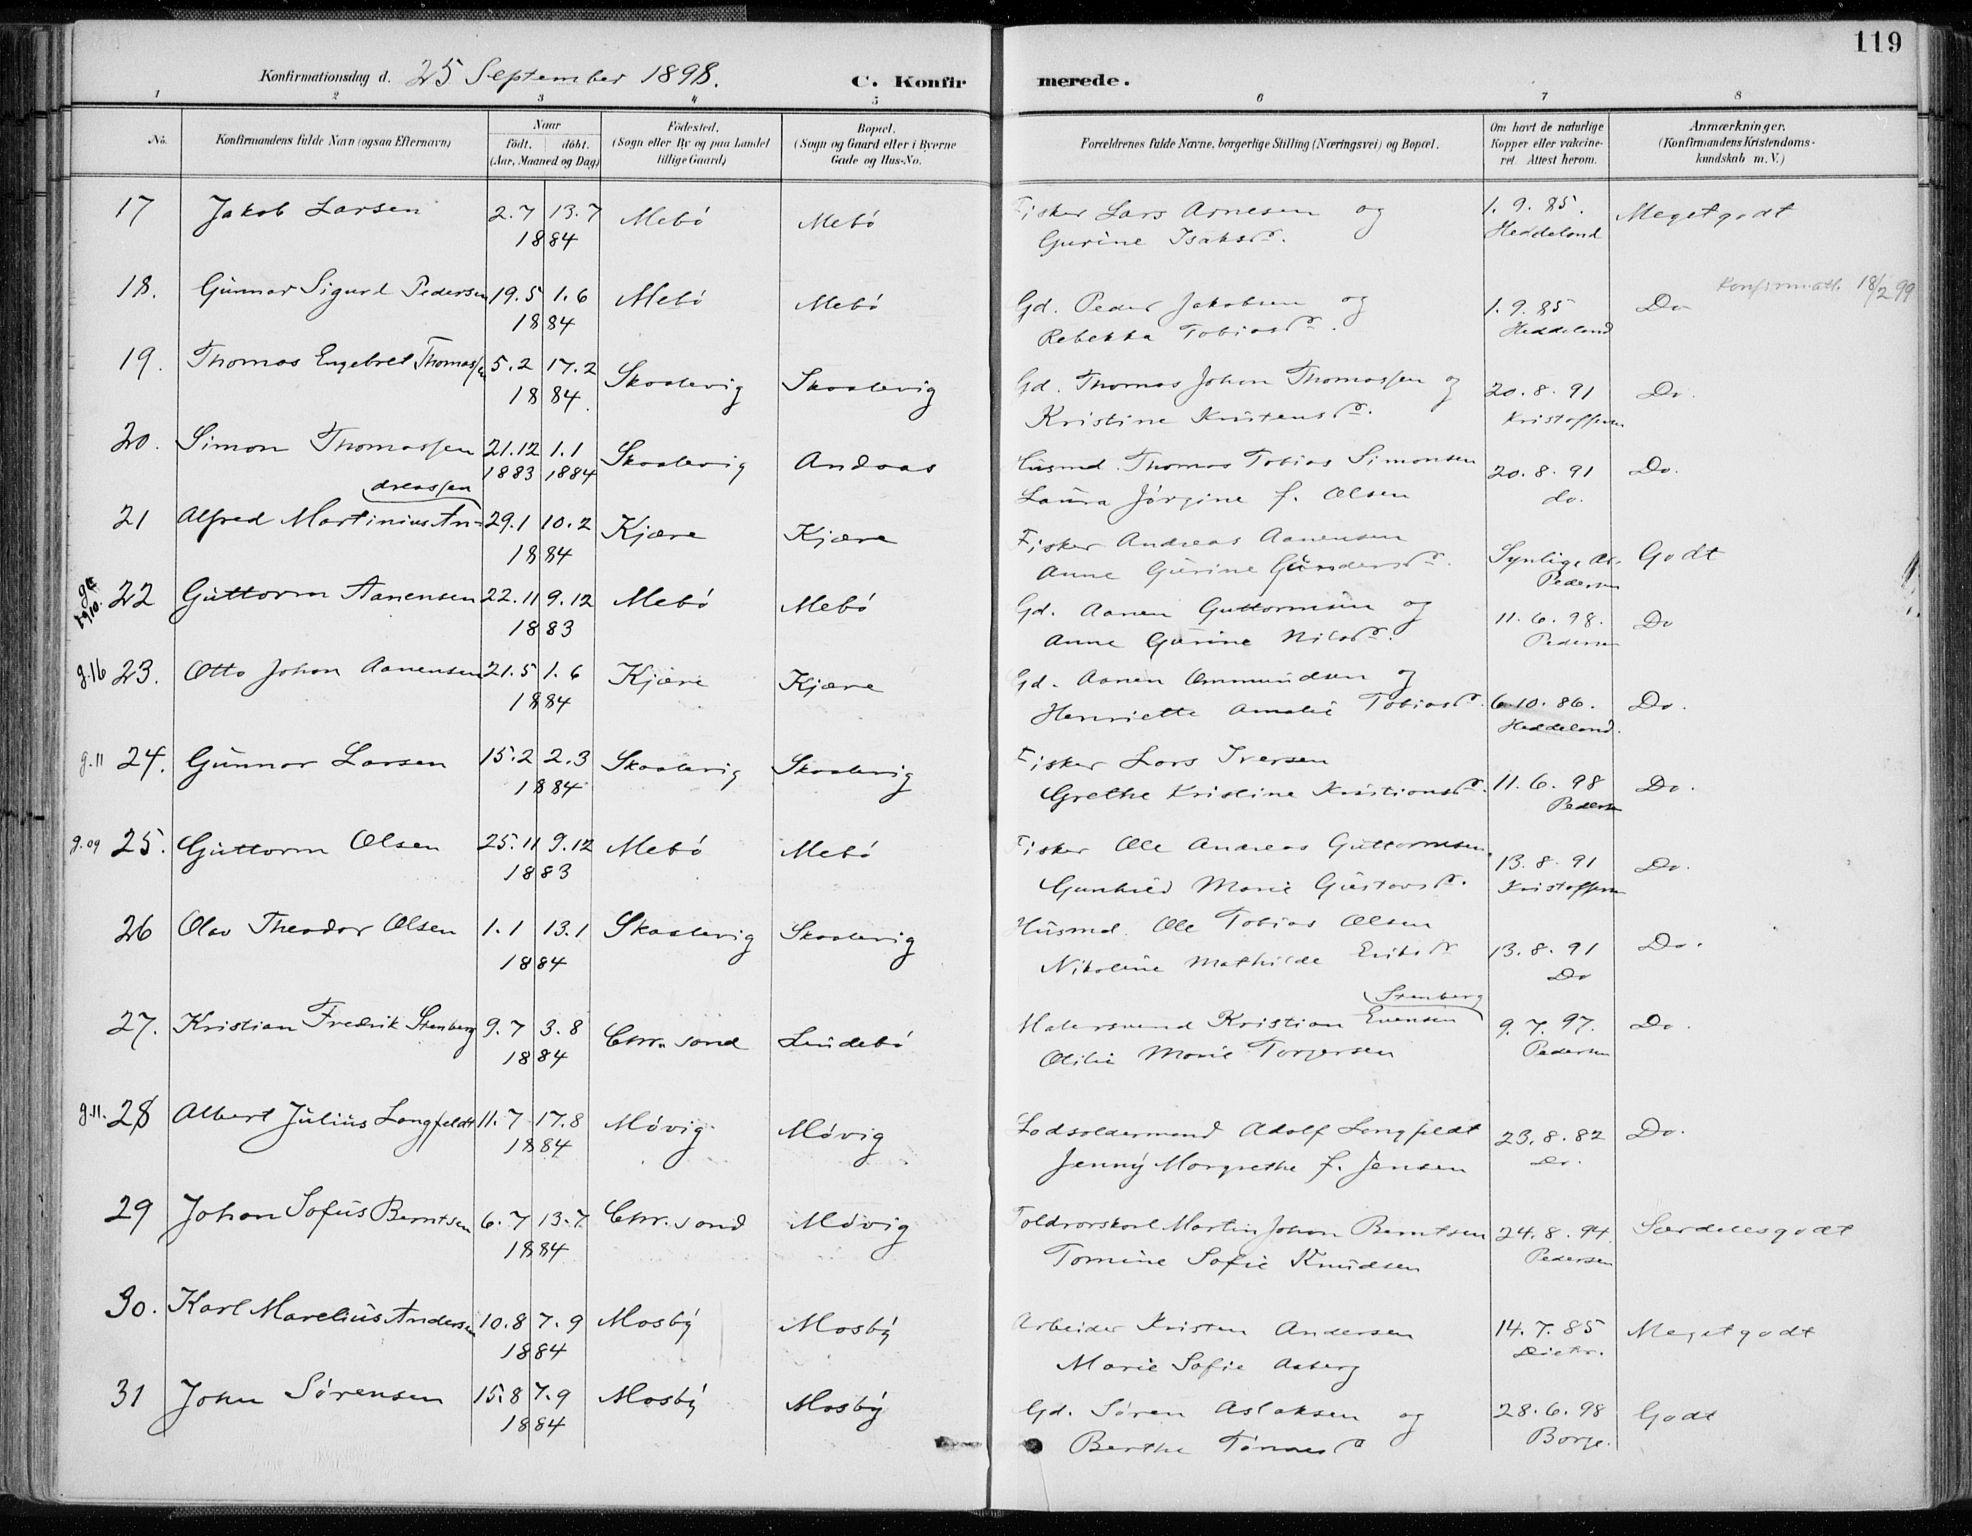 119
Konfirmationsdag d. 25 September 1898. C. Konfirmerede.
1 2 3 4 5 6 7 8
No. Konfirmandens fulde Navn (ogsaa Efternavn) Naar født. døbt. (Aar, Maaned og Dag) Fødested. (Sogn eller By og paa Landet tillige Gaard) Bopæl. (Sogn og Gaard eller i Byerne Gade og Hus-No. Forældrenes fulde Navne, borgerlige Stilling (Næringsvei) og Bopæl. Om havt de naturlige Kopper eller vakcineret. Attest herom. Anmærkninger. (Konfirmandens Kristendomskundskab m. V.)
17 Jakob Larsen 2.7 13.7 Mebø Mebø Fisker Lars Arnesen og 1.9.85. Meget godt
1884 Gurine Isaksdr. Heddeland
Konfirm.att. 18/2 99
18. Gunnar Sigurd Pedersen 19.5 1.6 Mebø Mebø Gd. Peder Jakobsen og 1.9.85 Do
1884 Rebekka Tobiasdr. Heddeland
19. Thomas Engebret Thomassen 5.2 17.2 Skaalevig Skaalevig Gd. Thomas Johan Thomassen og 20.8.91 Do.
1884. Kristine Knutensdr. Kristoffersen
20. Simon Thomassen 21.12 1.1 Skaalevig Andaas Husmd. Thomas Tobias Simonsen 20.8.91 Do.
1883 1884 Laura Jørgine f. Olsen do.
dreassen
21 Alfred Martinius An- 29.1 10.2 Kjære Kjære Fisker Andreas Aanensen Synlige, At. Godt
1884 Anne Gurine Gundersdr. Pedersen
g. 19/10. 22 Guttorm Aanensen 22.11 9.12 Mebø Mebø Gd. Aanen Guttormsen og 11.6.98. Do
1883 Anne Gurine Nilsdr. Pedersen
g.16 23. Otto Johan Aanensen 21.5 1.6 Kjære Kjære Gd. Aanen Ommundsen og 6.10.86. Do.
1884 Henriette Amalie Tobiasdr. Heddeland.
g.11 24. Gunnar Larsen 15.2 2.3 Skaalevig Skaalevig Fisker Lars Iversen 11.6.98 Do.
1884 Grethe Kristine Kristiansdr. Pedersen
g.09 25. Guttorm Olsen 25.11 9.12 Mebø Mebø Fisker Ole Andreas Guttormsen. 13.8.91 Do.
1883 Gunhild Marie Gustavsdr. Kristoffersen
26 Olav Theodor Olsen 1.1 13.1 Skaalevig Skaalevig Husmd. Ole Tobias Olsen 13.8.91 Do.
1884 Nikoline Mathilde Eriksdr. Do
Stenberg
27. Kristian Fredrik Stenberg 9.7 3.8 Chr.sand Lindebø Malersvend Kristian Evensen 9.7.97. Do.
1884 Otilie Marie Torgersen Pedersen
g.11. 28 Albert Julius Langfeldt 11.7 17.8 Møvig Møvig Lodsoldermand Adolf Langfeldt 23.8.82 Do.
1884 Jenny Margrethe f. Jensen Do.
29 Johan Sofus Berntsen 6.7 13.7 Chr.sand Møvig Toldrorskarl Martin Johan Berntsen 24.8.94. Særdeles godt
1884 Tomine Sofie Knudsen Pedersen
30. Karl Marelius Andersen 10.8 7.9 Mosby Mosby Arbeider Kristen Andersen 14.7.85 Meget godt
1884 Marie Sofie Aaberg
31 John Sørensen 15.8 7.9 Mosby Mosby Gd. Søren Aslaksen og 28.6.98 Godt
1884 Berthe Tønnesdr. Borge.